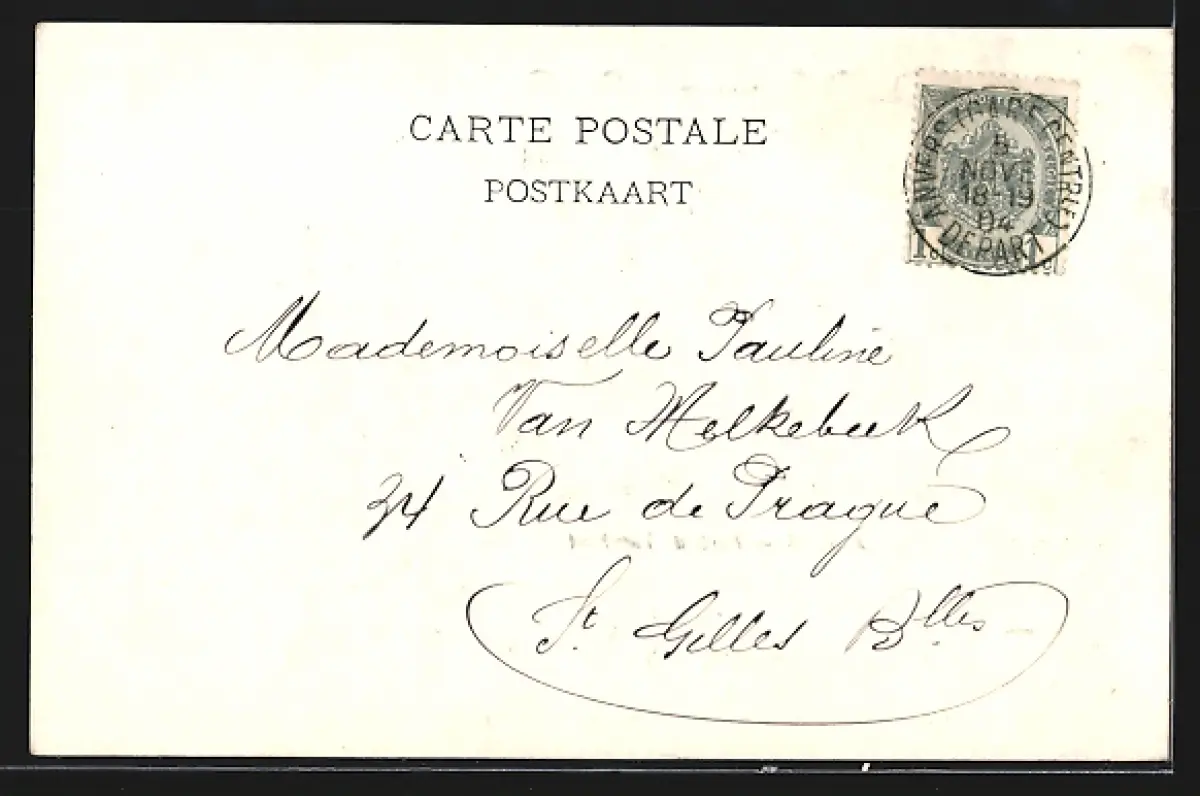 CARTE POSTALE
POSTKAART
ANVERS (GARE CENTRLE)
5
NOVE
18-19
04
DEPART
1c 1c
Mademoiselle Pauline
Van Melkebeek
34 Rue de Prague
St Gilles Blles